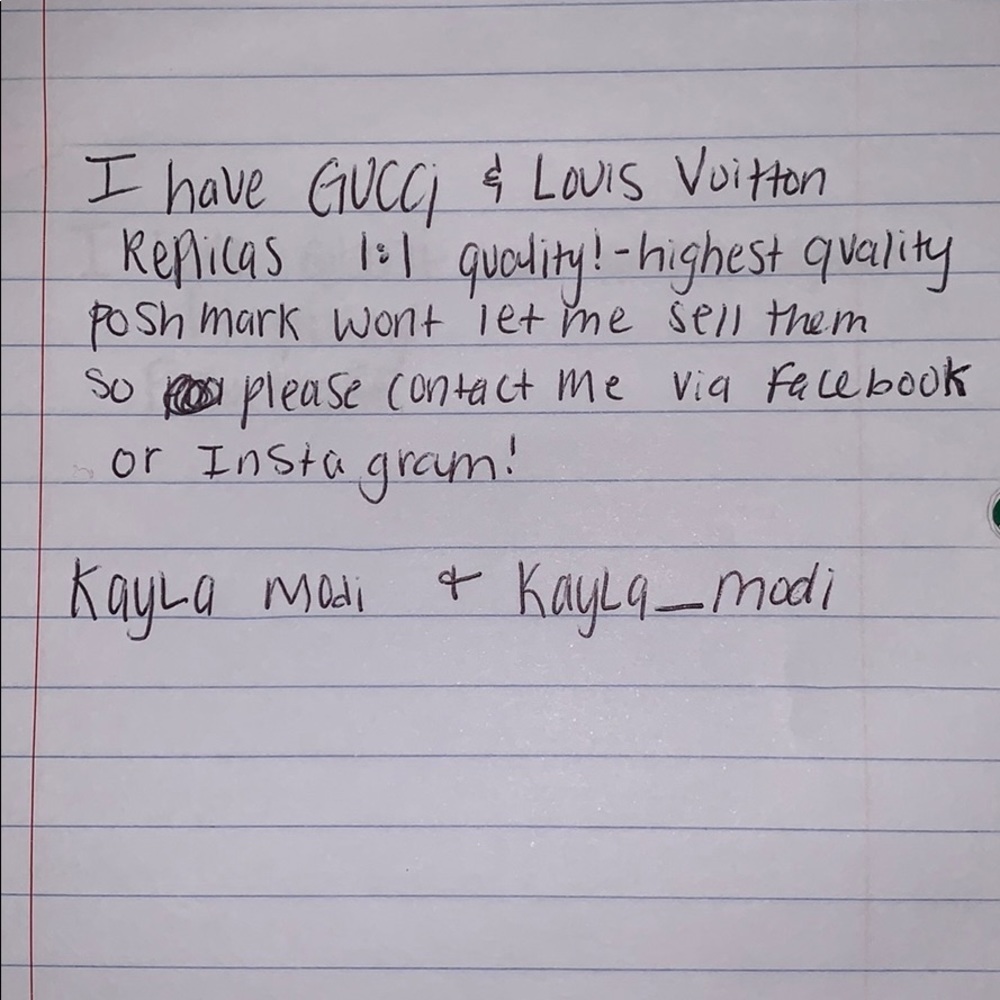 I have GUCCi & LOUIS Vuitton
Replicas 1:1 quality!-highest quality
poshmark wont let me sell them
so please contact me via Facebook
or Instagram!
KayLa Modi + KayLa_modi